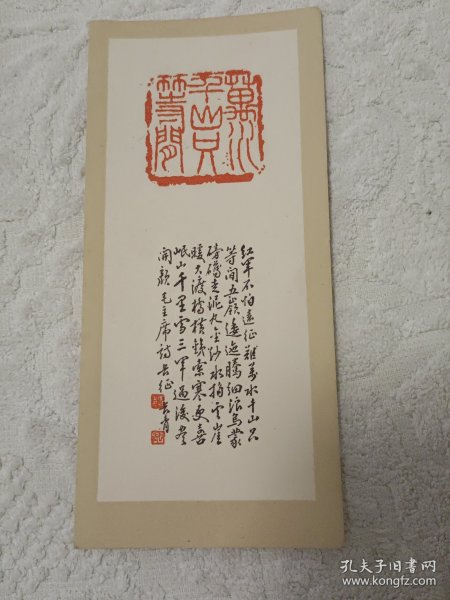 萬水
千山只
等閒
紅軍不怕遠征難萬水千山只
等閒五嶺逶迤騰細浪烏蒙
磅礴走泥丸金沙水拍雲崖
暖大渡橋横鐵索寒更喜
岷山千里雪三軍過後盡
開顏毛主席詩長征
孔夫子旧书网
www.kongfz.com